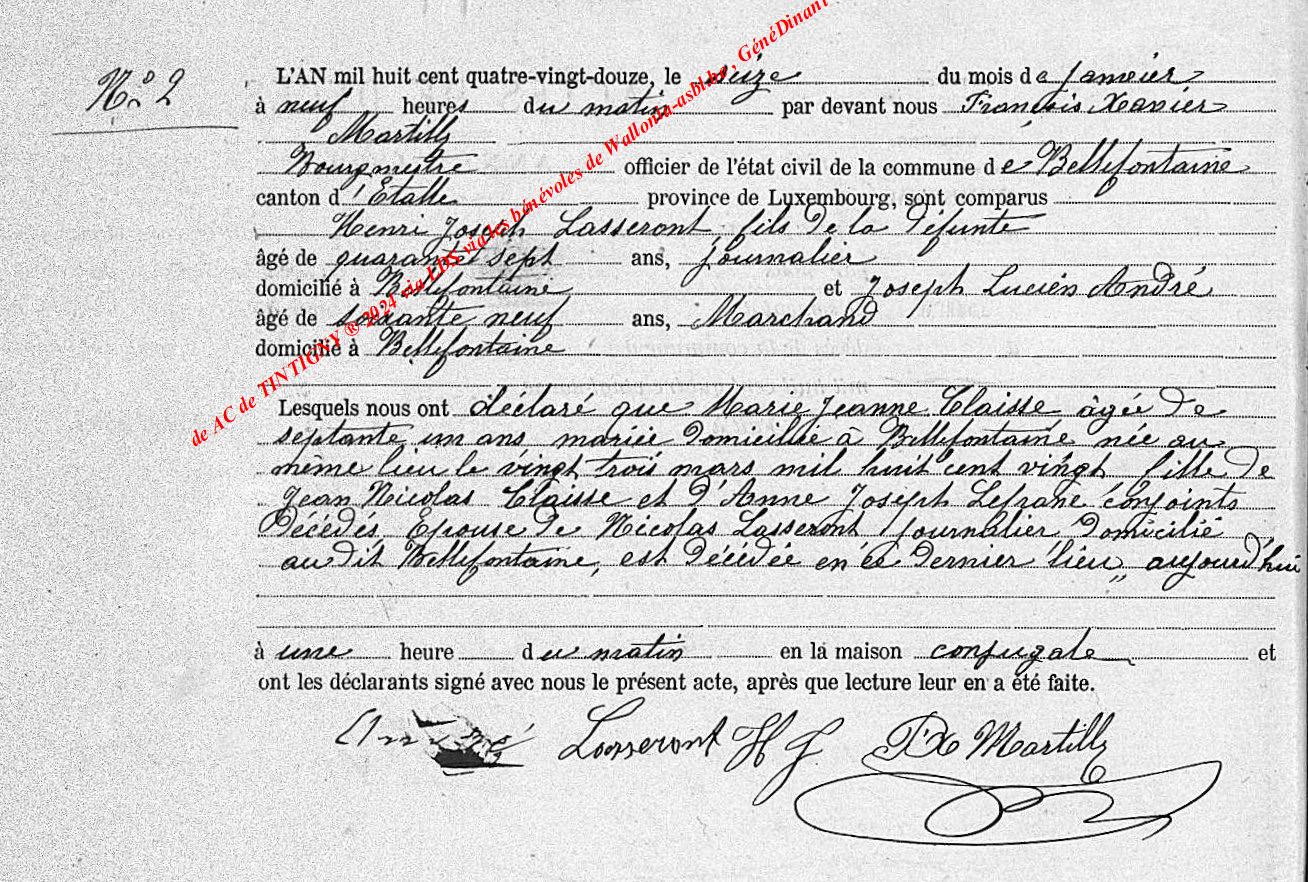 N° 2
L'AN mil huit cent quatre-vingt-douze, le seize du mois de Janvier
à neuf heures du matin par devant nous François Xavier
Martilly
Bourgmestre officier de l'état civil de la commune de Bellefontaine
canton d'Etalle province de Luxembourg, sont comparus
Henri Joseph Lasseront, fils de la défunte
âgé de quarante sept ans, journalier
domicilié à Bellefontaine et Joseph Lucien André
âgé de soixante neuf ans, Marchand
domicilié à Bellefontaine
Lesquels nous ont déclaré que Marie Jeanne Claisse âgée de
septante un ans mariée domiciliée à Bellefontaine née au
même lieu le vingt trois mars mil huit cent vingt fille de
Jean Nicolas Claisse et d'Anne Joseph Lefranc conjoints
décédés, Epouse de Nicolas Lasseront journalier domicilié
audit Bellefontaine, est décédée en ce dernier lieu,, aujourd'hui
à une heure du matin en la maison conjugale et
ont les déclarants signé avec nous le présent acte, après que lecture leur en a été faite.
Lasseront H J. FX Martilly
de AC de TINTIGNY ® 2024 via LDS via les bénévoles de Wallonia-asbl.be, GénéDinant